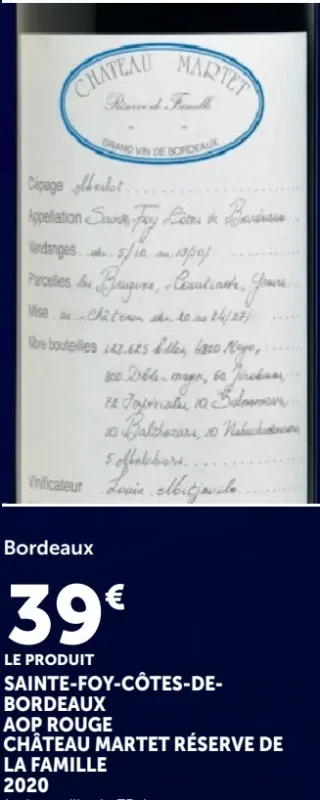 CHATEAU MARTET
Réserve de Famille
GRAND VIN DE BORDEAUX
Cépage Merlot
Appellation Sainte Foy Côtes de Bordeaux
Vendanges du 5/10 au 13/10/
Parcelles Les Bruyères,
Mise au Château du 20 au 24/07/
Nbre bouteilles 122.625 Blles, 4200 Magn,
300 Dble-magn, 60 Jeroboams,
72 Impériales, 10 Salmanazars,
10 Balthazars, 10 Nabuchodonosors
5 Melchiors
Vinificateur Louis Mitjavile
Bordeaux
39€
LE PRODUIT
SAINTE-FOY-CÔTES-DE-
BORDEAUX
AOP ROUGE
CHÂTEAU MARTET RÉSERVE DE
LA FAMILLE
2020